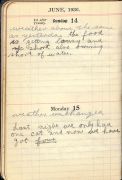 JUNE, 1936.
Sunday 14
weather about the same
as yesterday the food
is getting scarce and
we are short also running
short of water.
Monday 15
weather unchanged
last night we only had
one cat and now we have
got four